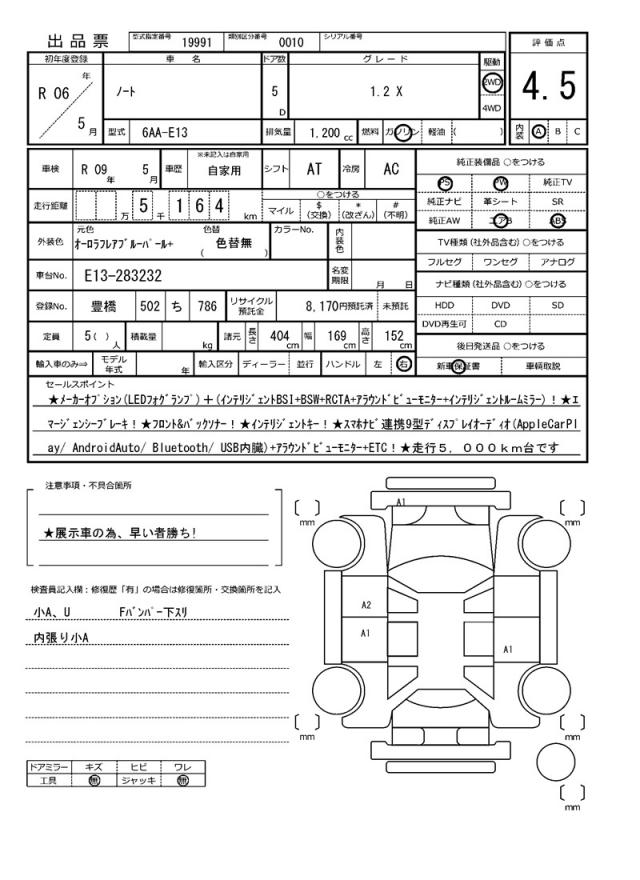 出品票 型式指定番号 19991 類別区分番号 0010 シリアル番号
評価点
4.5
内装 A B C
初年度登録 車名 ドア数 グレード 駆動
R 06 年 5 月
ノート 5 D 1.2 X 2WD 4WD
型式 6AA-E13 排気量 1.200 cc 燃料 ガソリン 軽油 ( )
車検 R 09 年 5 月 車歴 ※未記入は自家用 自家用 シフト AT 冷房 AC
純正装備品 ○をつける
PS PW 純正TV
純正ナビ 革シート SR
純正AW エアB ABS
走行距離 万 5 千 1 6 4 km
○をつける
マイル $(交換) *(改ざん) #(不明)
外装色 元色 オーロラフレアブルーパール+ 色替 ( 色替無 ) カラーNo. 内装色
TV種類(社外品含む)○をつける
フルセグ ワンセグ アナログ
車台No. E13-283232 名変期限 月 日
ナビ種類(社外品含む)○をつける
HDD DVD SD
DVD再生可 CD
登録No. 豊橋 502 ち 786 リサイクル預託金 8,170円預託済 未預託
定員 5( ) 人 積載量 kg 諸元 長さ 404 cm 幅 169 cm 高さ 152 cm
後日発送品 ○をつける
新車保証書 車輌取説
輸入車のみ⇒ モデル年式 年 輸入区分 ディーラー 並行 ハンドル 左 右
セールスポイント
★メーカーオプション(LEDフォグランプ)+(インテリジェントBSI+BSW+RCTA+アラウンドビューモニター+インテリジェントルームミラー)!★エ
マージェンシーブレーキ!★フロント&バックソナー!★インテリジェントキー!★スマホナビ連携9型ディスプレイオーディオ(AppleCarPl
ay/ AndroidAuto/ Bluetooth/ USB内臓)+アラウンドビューモニター+ETC!★走行5,000km台です
注意事項・不具合箇所
★展示車の為、早い者勝ち!
検査員記入欄:修復歴「有」の場合は修復箇所・交換箇所を記入
小A、U Fバンパー下スリ
内張り小A
A1
A2
A1
A1
mm
mm
mm
mm
mm
ドアミラー キズ ヒビ ワレ
工具 無 ジャッキ 無